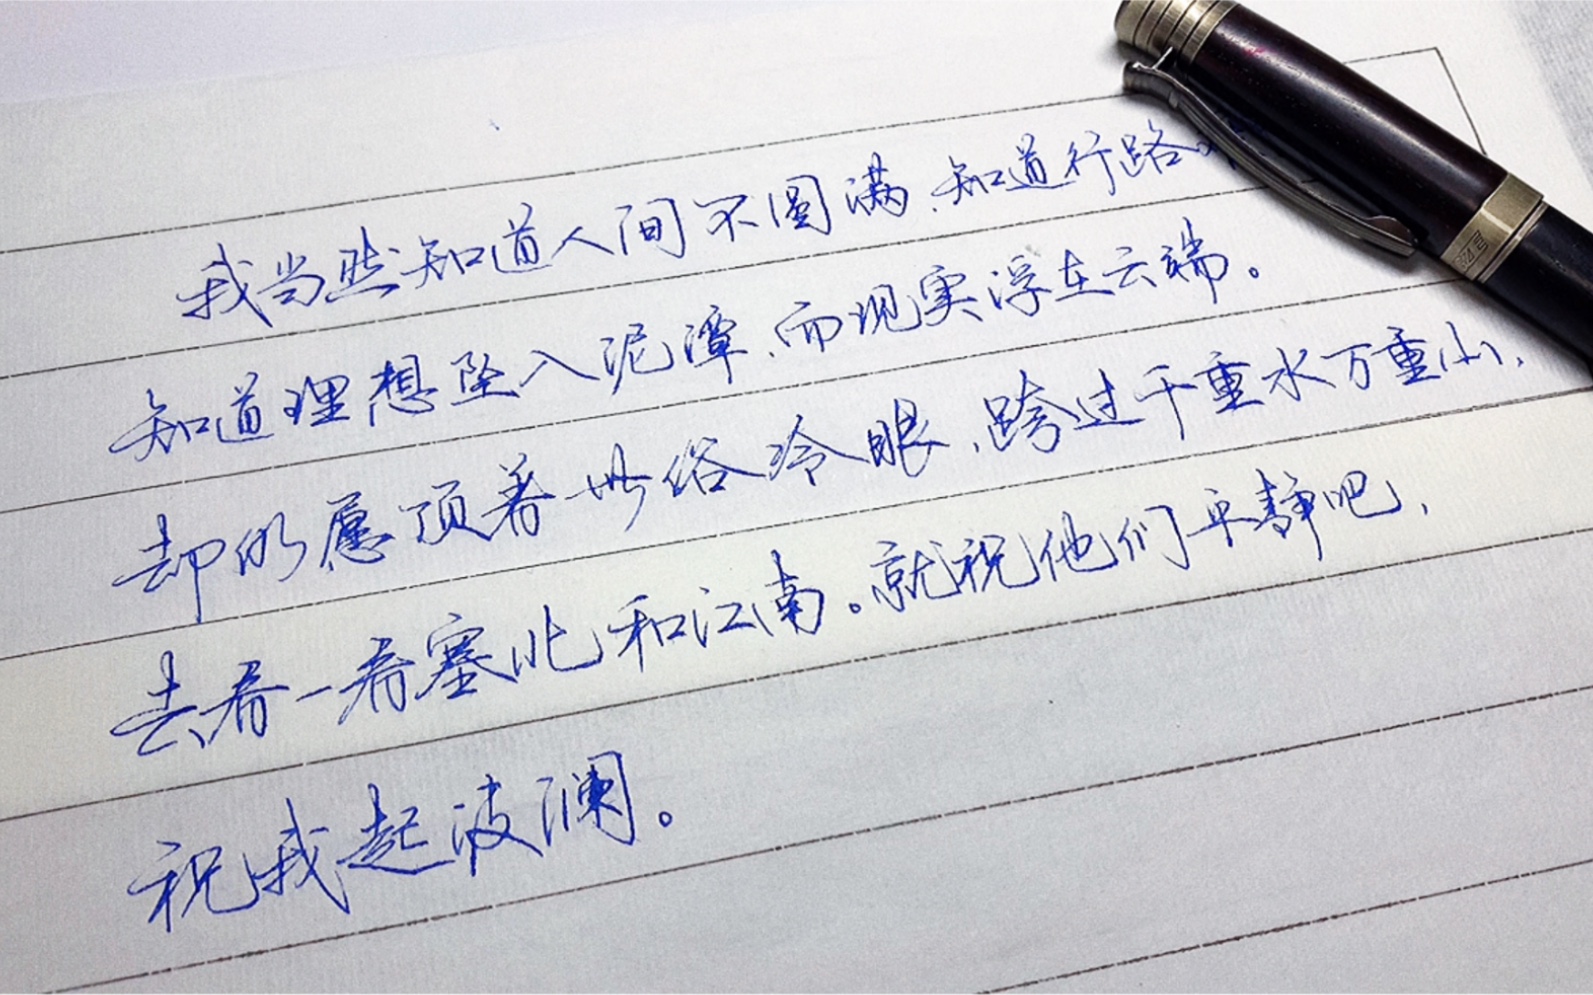 我当然知道人间不圆满、知道行路
知道理想坠入泥潭、而现实浮在云端。
却仍愿顶着世俗冷眼、跨过千重水万重山,
去看一看塞北和江南。就祝他们平静吧,
祝我起波澜。